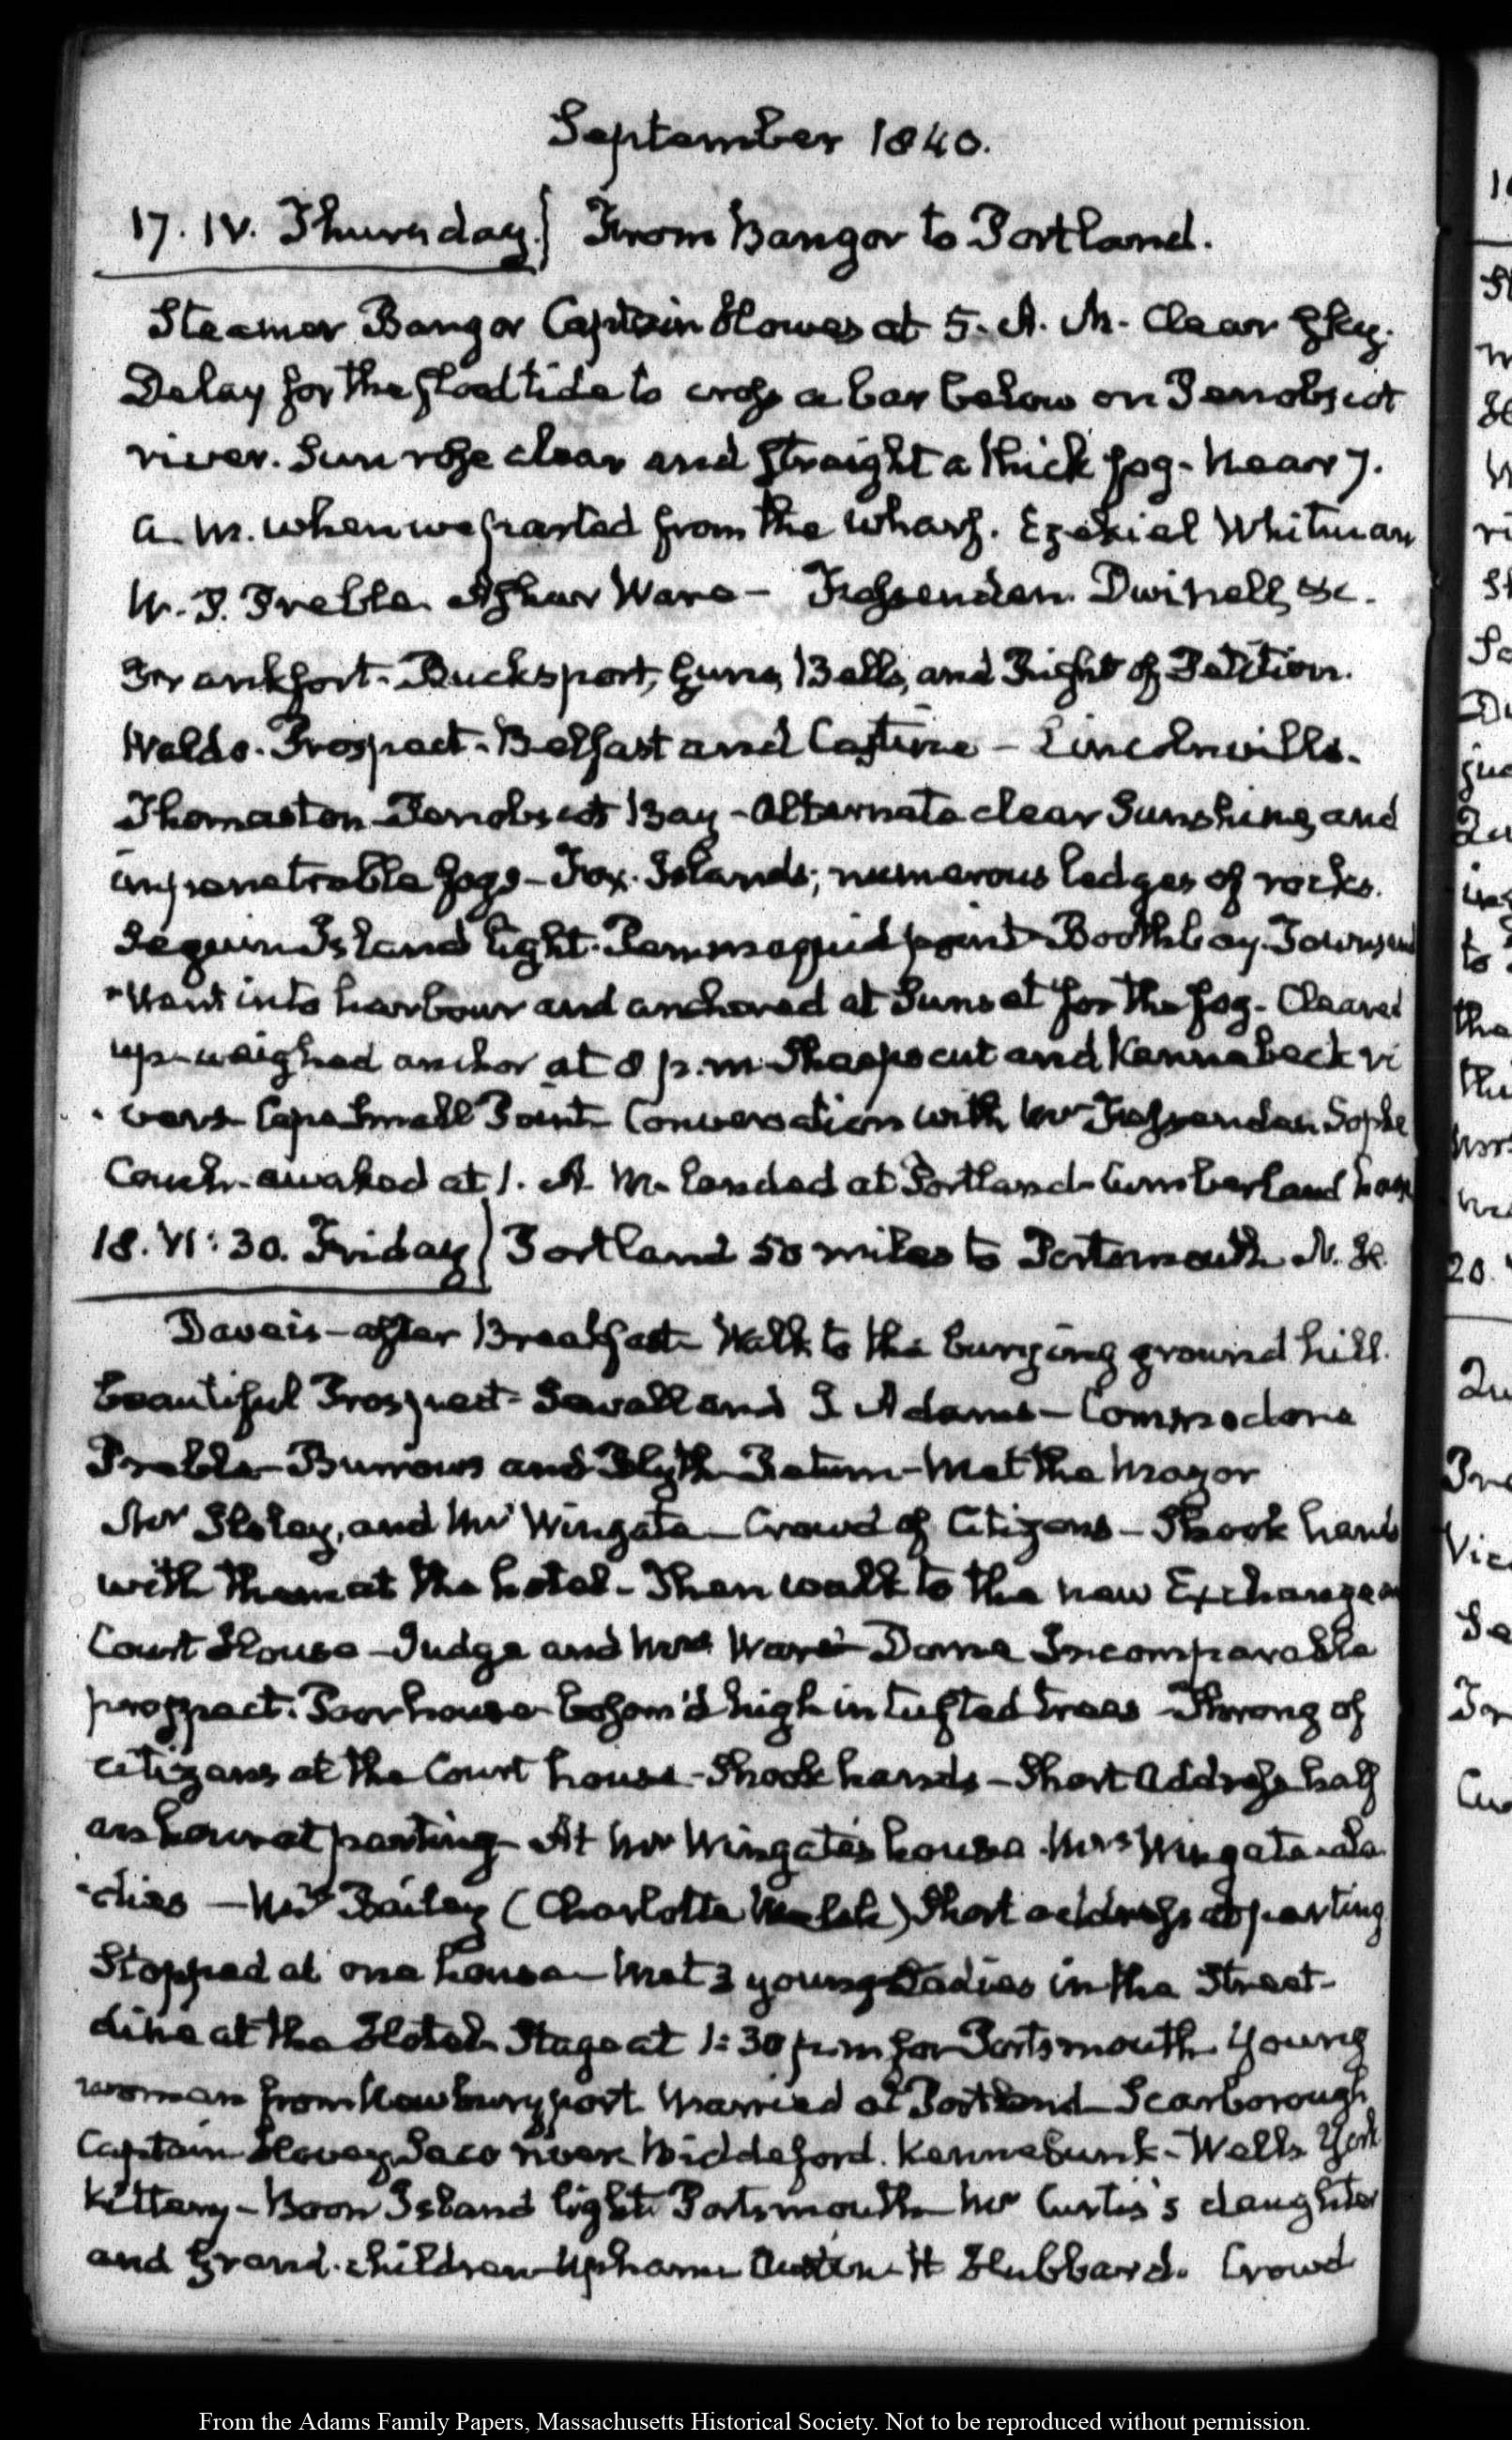 September 1840.
17. IV. Thursday.} From Bangor to Portland.
Steamer Bangor Captain Howes at 5. A. M. Clear Sky.
Delay for the flood tide to cross a bar below on Penobscot
river. Sun rose clear and straight a thick fog. Near 7.
a. m. when we parted from the wharf. Ezekiel Whitman
W. P. Preble. Ashur Ware — Fessenden. Dwinell, &c.
Frankfort. Bucksport, Guns, Bells, and Right of Petition.
Waldo. Prospect. Belfast and Castine — Lincolnville.
Thomaston Penobscot Bay — Alternate clear Sunshine, and
impenetrable fogs — Fox Islands; numerous ledges of rocks.
Seguin Island light. Pemmaquid point Boothbay. Townsend
Went into harbour and anchored at Sunset for the fog. Cleared
up — weighed anchor at 8 p.m. Sheepscut and Kennebeck ri
vers Cape Small Point Conversation with Mr Fessenden Sopha
Couch. awaked at 1. A. M. landed at Portland Cumberland house
18. VI: 30. Friday} Portland 50 miles to Portsmouth N. H.
Daveis — after Breakfast Walk to the burying ground hill.
beautiful Prospect — Sewall and J Adams — Commodore
Preble Burrows and Blyth Return — Met the Mayor
and Mr Wingate — Crowd of Citizens — Shook hands
with them at the hotel — Then walk to the new Exchange
Court House — Judge and Mrs Ware Dome Incomparable
prospect. Poor house bosom'd high in tufted trees — Throng of
citizens at the Court house — Shook hands — Short Address half
an hour at parting At Mr Wingate's house. Mrs Wingate — la
dies — Mrs Bailey (Charlotte Welsh) Short address at parting
Stopped at one house — Met 3 young Ladies in the Street —
dine at the Hotel. Stage at 1:30 p.m for Portsmouth Young
woman from Newburyport Married at Portland Scarborough
Captain Saco river Biddeford. Kennebunk — Wells York
Kittery — Boon Island light Portsmouth Mr Curtis's daughter
and Grand-children Upham Austin H Hubbard. Crowd
From the Adams Family Papers, Massachusetts Historical Society. Not to be reproduced without permission.